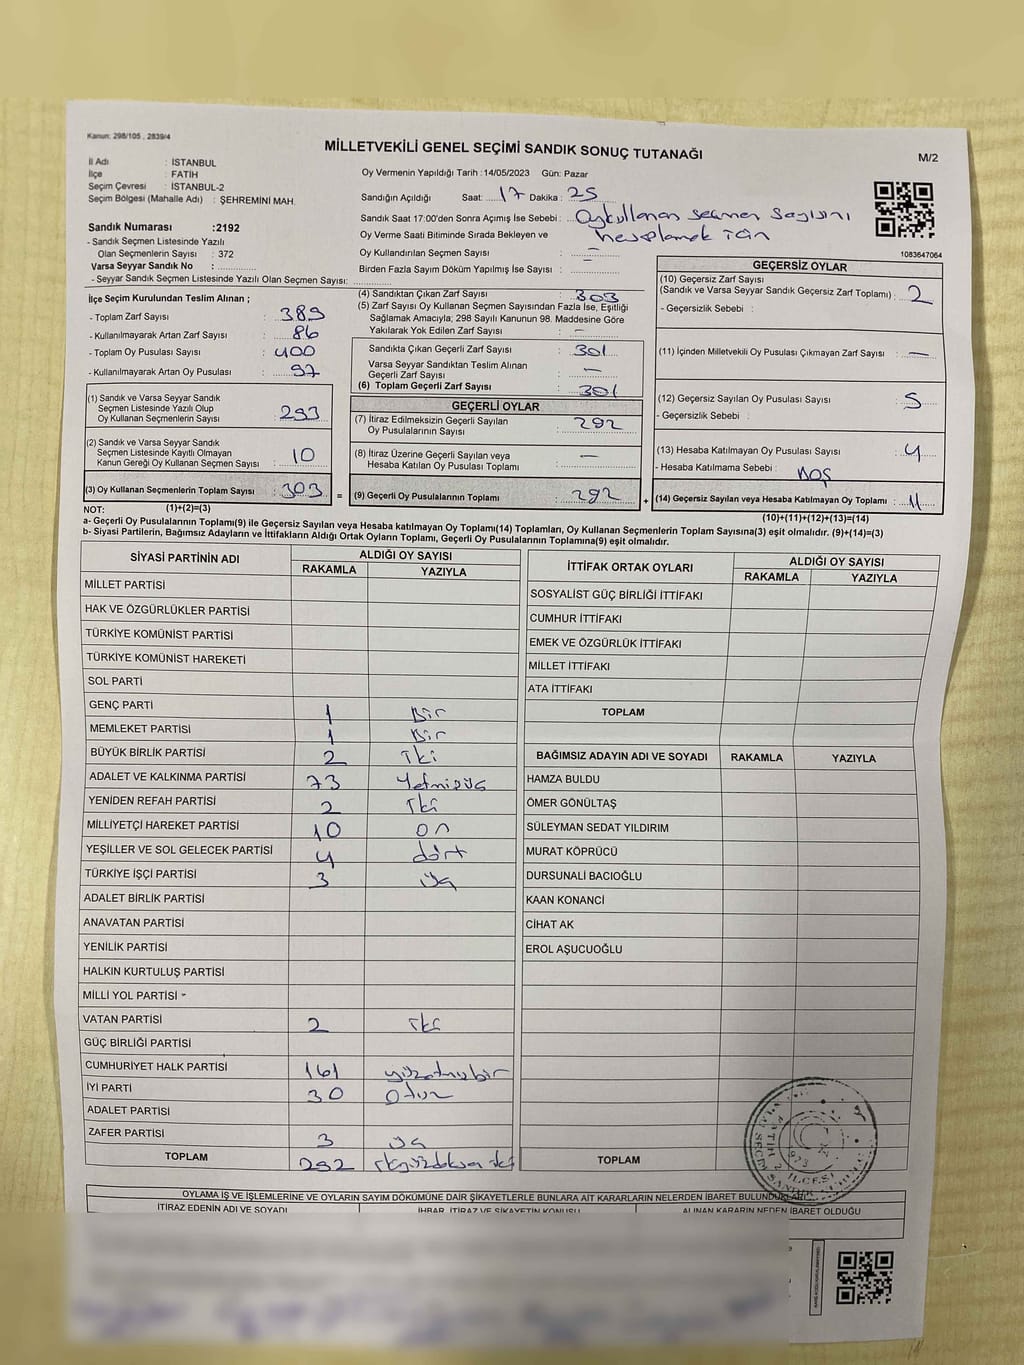 Kanun: 298/105 , 2839/4
MİLLETVEKİLİ GENEL SEÇİMİ SANDIK SONUÇ TUTANAĞI
M/2
İl Adı : İSTANBUL
İlçe : FATİH
Seçim Çevresi : İSTANBUL-2
Seçim Bölgesi (Mahalle Adı) : ŞEHREMİNİ MAH.
Sandık Numarası :2192
- Sandık Seçmen Listesinde Yazılı
Olan Seçmenlerin Sayısı : 372
Varsa Seyyar Sandık No :
- Seyyar Sandık Seçmen Listesinde Yazılı Olan Seçmen Sayısı:
Oy Vermenin Yapıldığı Tarih :14/05/2023 Gün: Pazar
Sandığın Açıldığı Saat: 17 Dakika : 25
Sandık Saat 17:00'den Sonra Açımış İse Sebebi : Oykullanan seçmen sayısını
Oy Verme Saati Bitiminde Sırada Bekleyen ve hesaplamak için
Oy Kullandırılan Seçmen Sayısı : –
Birden Fazla Sayım Döküm Yapılmış İse Sayısı : –
1083647064
İlçe Seçim Kurulundan Teslim Alınan ;
- Toplam Zarf Sayısı : 389
- Kullanılmayarak Artan Zarf Sayısı : 86
- Toplam Oy Pusulası Sayısı : 400
- Kullanılmayarak Artan Oy Pusulası : 97
(1) Sandık ve Varsa Seyyar Sandık
Seçmen Listesinde Yazılı Olup
Oy Kullanan Seçmenlerin Sayısı : 293
(2) Sandık ve Varsa Seyyar Sandık
Seçmen Listesinde Kayıtlı Olmayan
Kanun Gereği Oy Kullanan Seçmen Sayısı : 10
(3) Oy Kullanan Seçmenlerin Toplam Sayısı : 303 =
(4) Sandıktan Çıkan Zarf Sayısı : 303
(5) Zarf Sayısı Oy Kullanan Seçmen Sayısından Fazla İse, Eşitliği
Sağlamak Amacıyla; 298 Sayılı Kanunun 98. Maddesine Göre
Yakılarak Yok Edilen Zarf Sayısı : –
Sandıkta Çıkan Geçerli Zarf Sayısı : 301
Varsa Seyyar Sandıktan Teslim Alınan
Geçerli Zarf Sayısı : –
(6) Toplam Geçerli Zarf Sayısı : 301
GEÇERLİ OYLAR
(7) İtiraz Edilmeksizin Geçerli Sayılan
Oy Pusulalarının Sayısı : 292
(8) İtiraz Üzerine Geçerli Sayılan veya
Hesaba Katılan Oy Pusulası Toplamı : –
(9) Geçerli Oy Pusulalarının Toplamı : 292 +
GEÇERSİZ OYLAR
(10) Geçersiz Zarf Sayısı
(Sandık ve Varsa Seyyar Sandık Geçersiz Zarf Toplamı) : 2
- Geçersizlik Sebebi :
(11) İçinden Milletvekili Oy Pusulası Çıkmayan Zarf Sayısı : –
(12) Geçersiz Sayılan Oy Pusulası Sayısı : 5
- Geçersizlik Sebebi :
(13) Hesaba Katılmayan Oy Pusulası Sayısı : 4
- Hesaba Katılmama Sebebi : BOŞ
(14) Geçersiz Sayılan veya Hesaba Katılmayan Oy Toplamı : 11
NOT: (1)+(2)=(3) (10)+(11)+(12)+(13)=(14)
a- Geçerli Oy Pusulalarının Toplamı(9) ile Geçersiz Sayılan veya Hesaba katılmayan Oy Toplamı(14) Toplamları, Oy Kullanan Seçmenlerin Toplam Sayısına(3) eşit olmalıdır. (9)+(14)=(3)
b- Siyasi Partilerin, Bağımsız Adayların ve İttifakların Aldığı Ortak Oyların Toplamı, Geçerli Oy Pusulalarının Toplamına(9) eşit olmalıdır.
SİYASİ PARTİNİN ADI ALDIĞI OY SAYISI
RAKAMLA YAZIYLA
MİLLET PARTİSİ
HAK VE ÖZGÜRLÜKLER PARTİSİ
TÜRKİYE KOMÜNİST PARTİSİ
TÜRKİYE KOMÜNİST HAREKETİ
SOL PARTİ
GENÇ PARTİ 1 Bir
MEMLEKET PARTİSİ 1 Bir
BÜYÜK BİRLİK PARTİSİ 2 İki
ADALET VE KALKINMA PARTİSİ 73 Yetmişüç
YENİDEN REFAH PARTİSİ 2 İki
MİLLİYETÇİ HAREKET PARTİSİ 10 on
YEŞİLLER VE SOL GELECEK PARTİSİ 4 dört
TÜRKİYE İŞÇİ PARTİSİ 3 üç
ADALET BİRLİK PARTİSİ
ANAVATAN PARTİSİ
YENİLİK PARTİSİ
HALKIN KURTULUŞ PARTİSİ
MİLLİ YOL PARTİSİ
VATAN PARTİSİ 2 iki
GÜÇ BİRLİĞİ PARTİSİ
CUMHURİYET HALK PARTİSİ 161 yüzatmışbir
İYİ PARTİ 30 Otuz
ADALET PARTİSİ
ZAFER PARTİSİ 3 üç
TOPLAM 292 ikiyüzdoksan iki
İTTİFAK ORTAK OYLARI ALDIĞI OY SAYISI
RAKAMLA YAZIYLA
SOSYALİST GÜÇ BİRLİĞİ İTTİFAKI
CUMHUR İTTİFAKI
EMEK VE ÖZGÜRLÜK İTTİFAKI
MİLLET İTTİFAKI
ATA İTTİFAKI
TOPLAM
BAĞIMSIZ ADAYIN ADI VE SOYADI RAKAMLA YAZIYLA
HAMZA BULDU
ÖMER GÖNÜLTAŞ
SÜLEYMAN SEDAT YILDIRIM
MURAT KÖPRÜCÜ
DURSUNALİ BACIOĞLU
KAAN KONANCİ
CİHAT AK
EROL AŞUCUOĞLU
TOPLAM
FATİH 2. İLÇESİ
OYLAMA İŞ VE İŞLEMLERİNE VE OYLARIN SAYIM DÖKÜMÜNE DAİR ŞİKAYETLERLE BUNLARA AİT KARARLARIN NELERDEN İBARET BULUNDUKLARI
İTİRAZ EDENİN ADI VE SOYADI İHBAR, İTİRAZ VE ŞİKAYETİN KONUSU ALINAN KARARIN NEDEN İBARET OLDUĞU